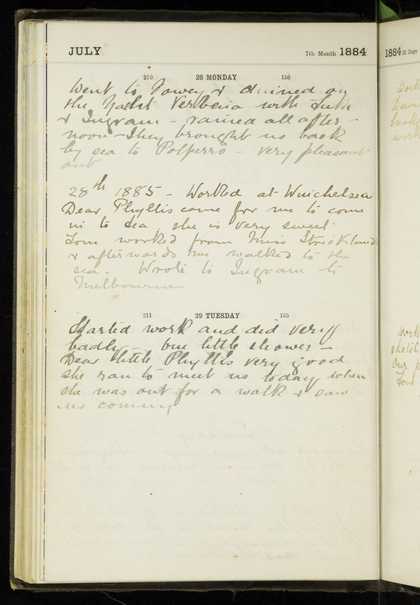 JULY 7th Month 1884
210 28 MONDAY 156
Went to Fowey & dined on
the Yacht Verbena with
& Ingram - rained all after-
noon - They brought us back
by sea to Polperro - very pleasant
out
28th 1885 - Worked at Winchelsea
Dear Phyllis came for me to come
in to tea she is very sweet
Tom worked from Miss Strickland
& afterwards we walked to the
sea. Wrote to Ingram to
Melbourne
211 29 TUESDAY 155
Started work and did very
badly - one little shower -
Dear little Phyllis very good
she ran to meet us today when
she was out for a walk & saw
us coming
1884